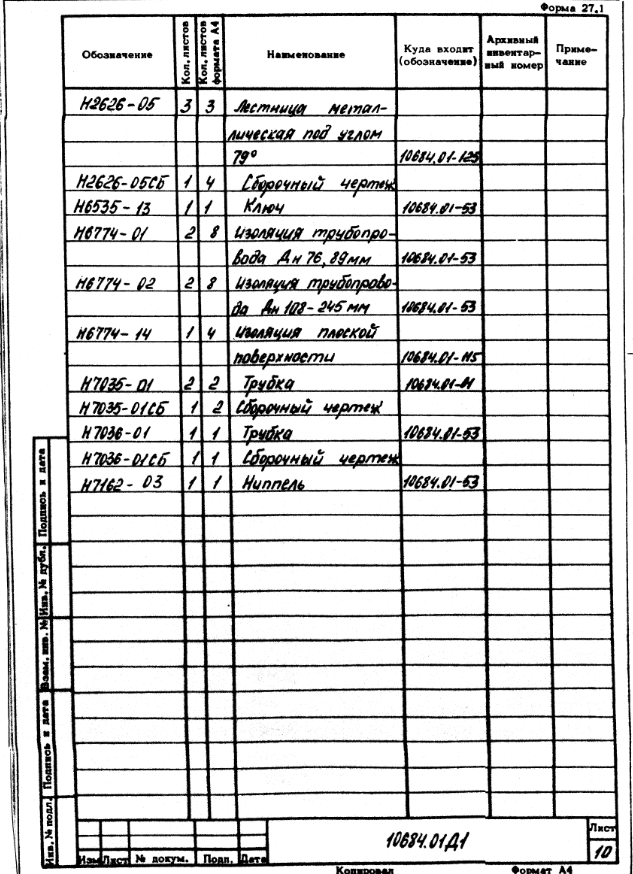 Форма 27.1
Обозначение Кол. листов Кол. листов формата А4 Наименование Куда входит (обозначение) Архивный инвентарный номер Примечание
Н2626-05 3 3 Лестница метал-
лическая под углом
79° 10684.01-125
Н2626-05СБ 1 4 Сборочный чертеж
Н6535-13 1 1 Ключ 10684.01-53
Н6774-01 2 8 Изоляция трубопро-
вода Дн 76, 89мм 10684.01-53
Н6774-02 2 8 Изоляция трубопрово-
да Дн 108-245 мм 10684.01-53
Н6774-14 1 4 Изоляция плоской
поверхности 10684.01-115
Н7035-01 2 2 Трубка 10684.01-
Н7035-01СБ 1 2 Сборочный чертеж
Н7036-01 1 1 Трубка 10684.01-53
Н7036-01СБ 1 1 Сборочный чертеж
Н7162-03 1 1 Ниппель 10684.01-53
Подпись и дата
Инв. № дубл.
Взам. инв. №
Подпись и дата
Инв. № подл.
10684.01Д1
Лист
10
Изм Лист № докум. Подп. Дата
Копировал Формат А4